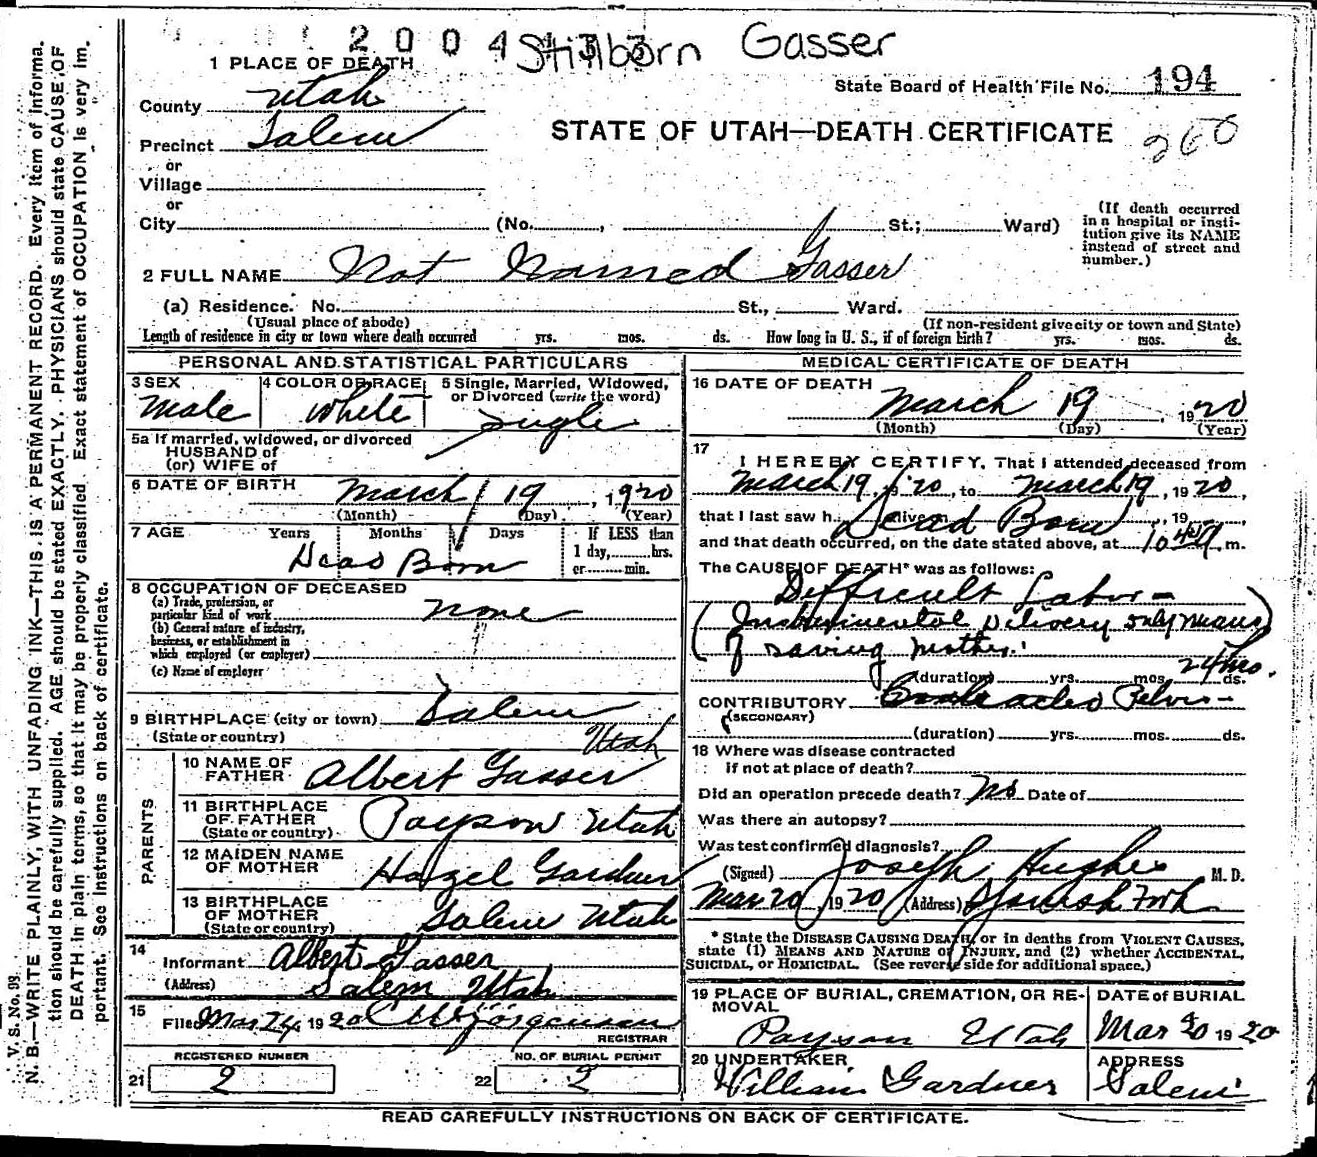 2004133 Stillborn Gasser
1 PLACE OF DEATH
State Board of Health File No. 194
County Utah
STATE OF UTAH—DEATH CERTIFICATE
260
Precinct Salem
or
Village
or
City (No. , St.; Ward)
(If death occurred
in a hospital or insti-
tution give its NAME
instead of street and
number.)
2 FULL NAME Not Named Gasser
(a) Residence. No. St., Ward.
(Usual place of abode) (If non-resident give city or town and State)
Length of residence in city or town where death occurred yrs. mos. ds. How long in U. S., if of foreign birth? yrs. mos. ds.
PERSONAL AND STATISTICAL PARTICULARS
3 SEX
Male
4 COLOR OR RACE
White
5 Single, Married, Widowed,
or Divorced (write the word)
Single
5a If married, widowed, or divorced
HUSBAND of
(or) WIFE of
6 DATE OF BIRTH March 19, 1920
(Month) (Day) (Year)
7 AGE Years Months Days If LESS than
1 day, hrs.
or min.
Dead Born
8 OCCUPATION OF DECEASED
(a) Trade, profession, or
particular kind of work none
(b) General nature of industry,
business, or establishment in
which employed (or employer)
(c) Name of employer
9 BIRTHPLACE (city or town) Salem
(State or country) Utah
PARENTS
10 NAME OF
FATHER Albert Gasser
11 BIRTHPLACE
OF FATHER Payson Utah
(State or country)
12 MAIDEN NAME
OF MOTHER Hazel Gardner
13 BIRTHPLACE
OF MOTHER Salem Utah
(State or country)
14
Informant Albert Gasser
(Address) Salem Utah
15
Filed Mar 24 1920 Jorgensen
REGISTRAR
REGISTERED NUMBER
21 2
NO. OF BURIAL PERMIT
22 2
MEDICAL CERTIFICATE OF DEATH
16 DATE OF DEATH
March 19, 1920
(Month) (Day) (Year)
17
I HEREBY CERTIFY, That I attended deceased from
March 19, 1920, to March 19, 1920,
that I last saw h alive on Dead Born, 19
and that death occurred, on the date stated above, at 10 m.
The CAUSE OF DEATH* was as follows:
Difficult Labor -
(Instrumental delivery only means
of saving mother.)
24 hrs.
(duration) yrs. mos. ds.
CONTRIBUTORY Contracted Pelvis -
(SECONDARY)
(duration) yrs. mos. ds.
18 Where was disease contracted
if not at place of death?
Did an operation precede death? No Date of
Was there an autopsy?
Was test confirmed diagnosis?
(Signed) Joseph Hughes M. D.
Mar 20, 1920 (Address) Spanish Fork
* State the DISEASE CAUSING DEATH, or in deaths from VIOLENT CAUSES,
state (1) MEANS AND NATURE OF INJURY, and (2) whether ACCIDENTAL,
SUICIDAL, or HOMICIDAL. (See reverse side for additional space.)
19 PLACE OF BURIAL, CREMATION, OR RE-
MOVAL
Payson Utah
DATE of BURIAL
Mar 20 1920
20 UNDERTAKER
William Gardner
ADDRESS
Salem
READ CAREFULLY INSTRUCTIONS ON BACK OF CERTIFICATE.
V. S. No. 98
N. B.—WRITE PLAINLY, WITH UNFADING INK—THIS IS A PERMANENT RECORD. Every item of informa-
tion should be carefully supplied. AGE should be stated EXACTLY. PHYSICIANS should state CAUSE OF
DEATH in plain terms, so that it may be properly classified. Exact statement of OCCUPATION is very im-
portant. See instructions on back of certificate.